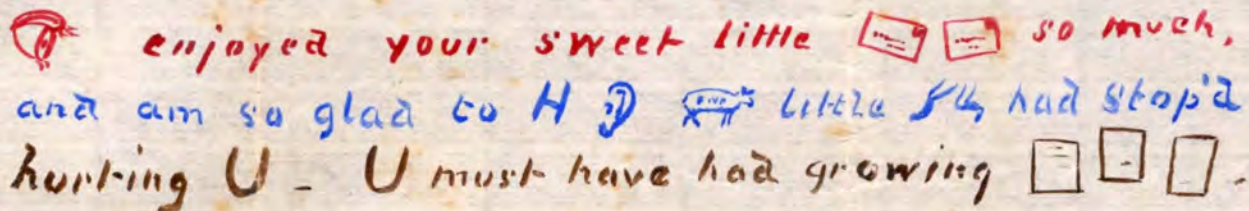 enjoyed your sweet little so much,
and am so glad to H little had stop'd
hurting U - U must have had growing .